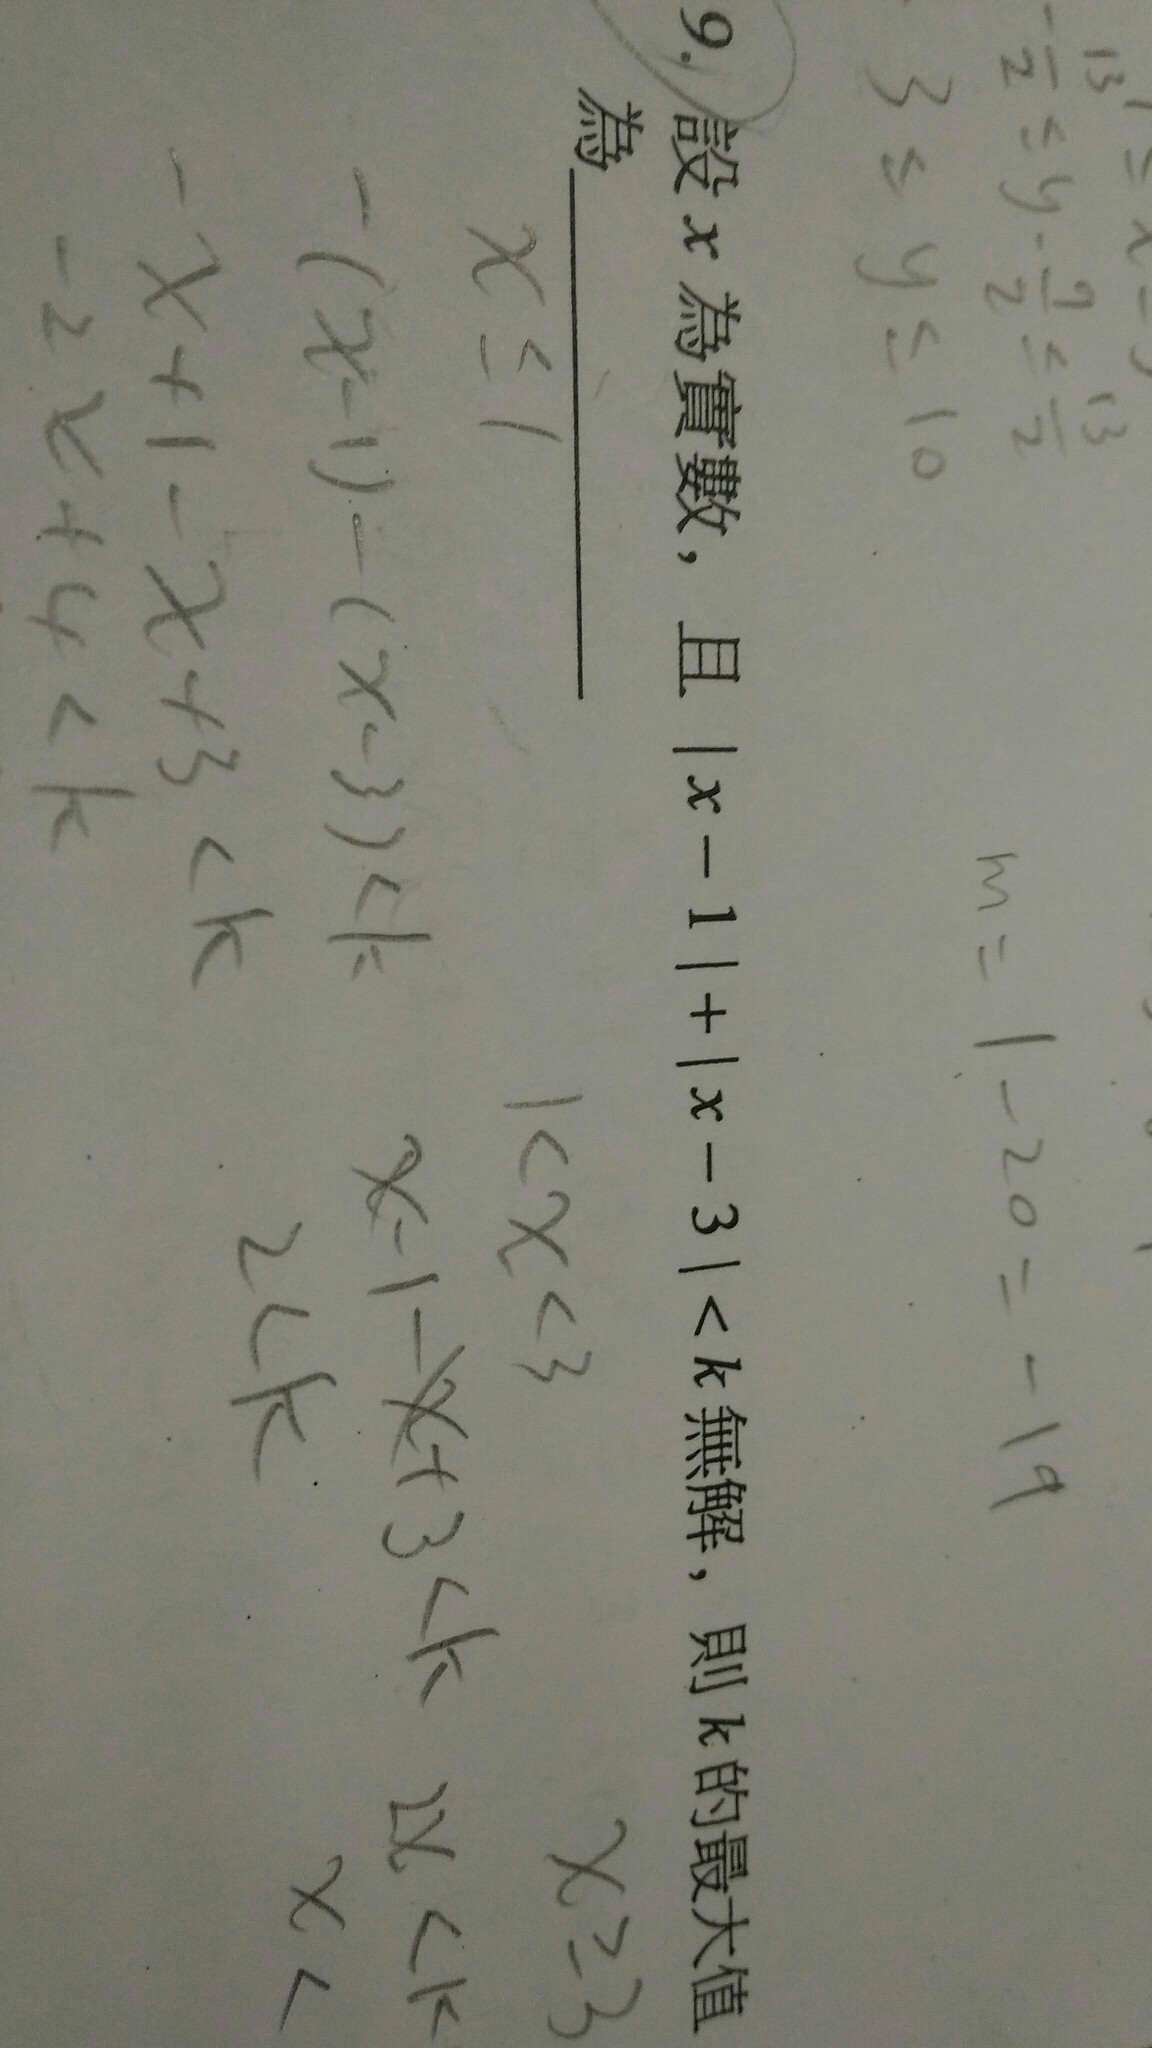 13
-13/2 ≤ y - 7/2 ≤ 13/2
3 ≤ y ≤ 10
m = 1 - 20 = -19
9. 設 x 為實數，且 |x - 1| + |x - 3| < k 無解，則 k 的最大值
為
x ≤ 1
-(x-1)-(x-3)<k
-x+1-x+3<k
-2x+4<k
1<x<3
x-1-x+3<k
2<k
x≥3
2x<k
x<